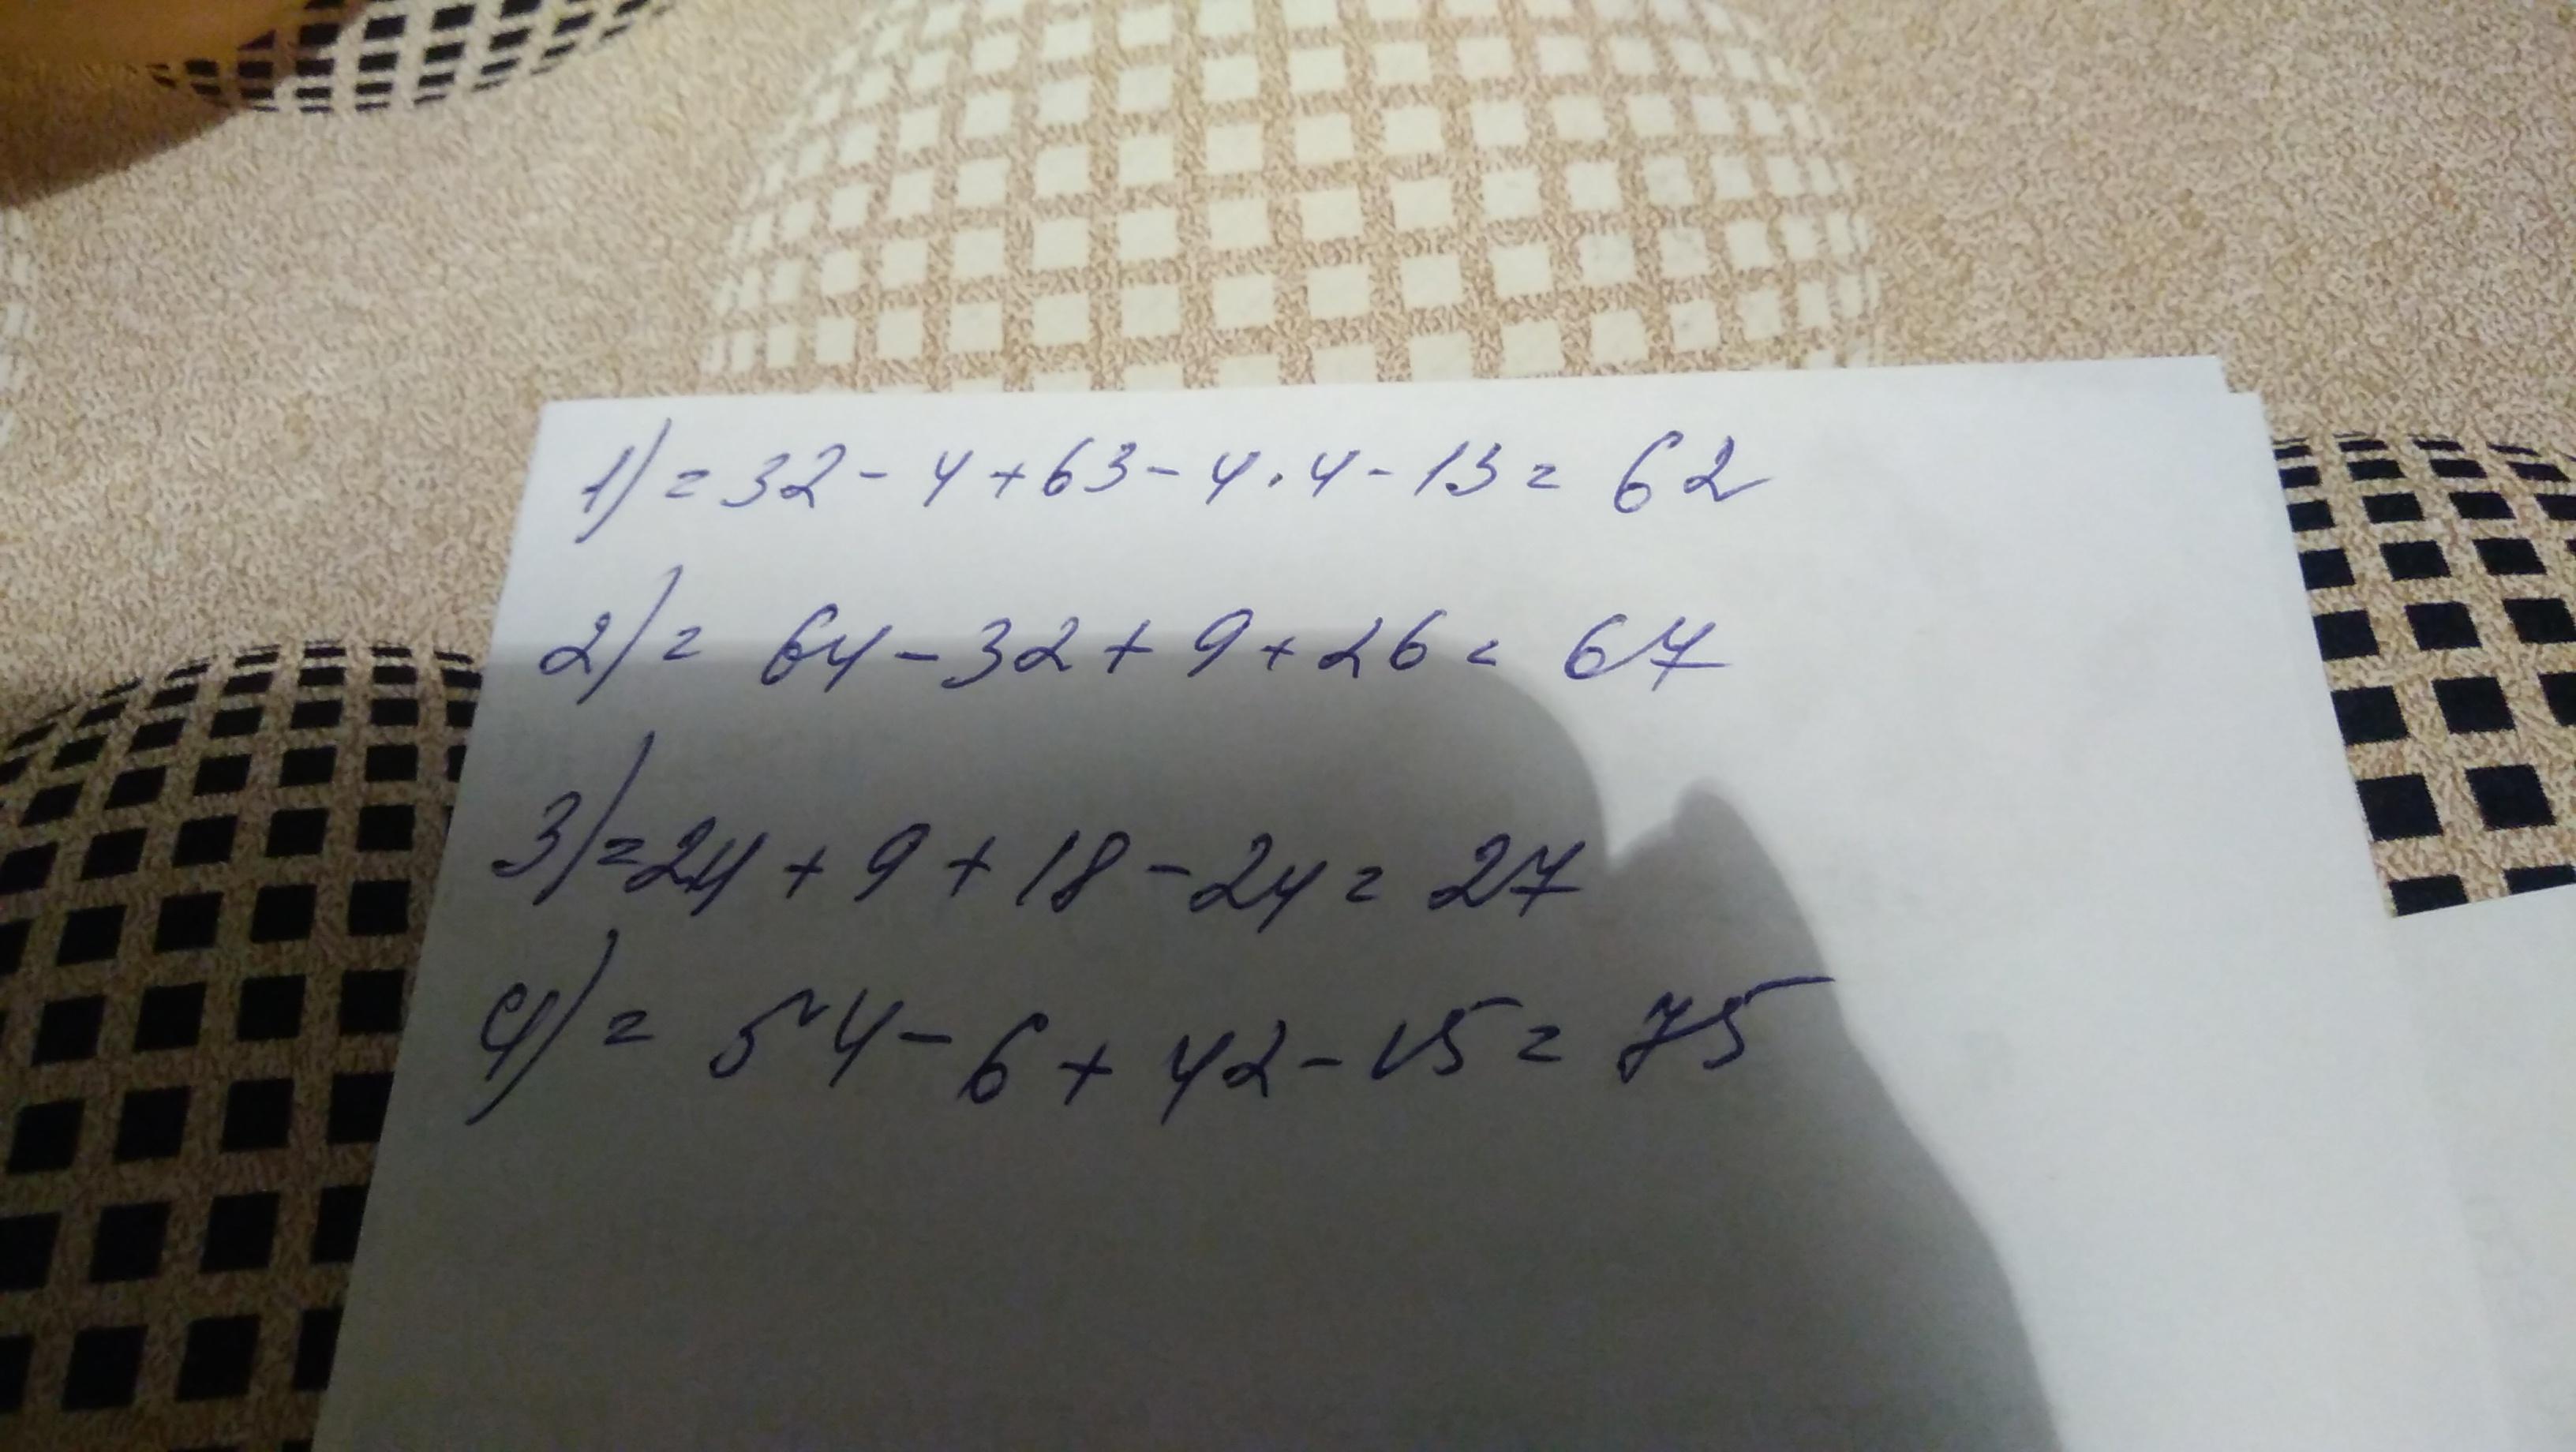 1) = 32 - 4 + 63 - 4 · 4 - 13 = 62
2) = 64 - 32 + 9 + 26 = 67
3) = 24 + 9 + 18 - 24 = 27
4) = 54 - 6 + 42 - 15 = 75